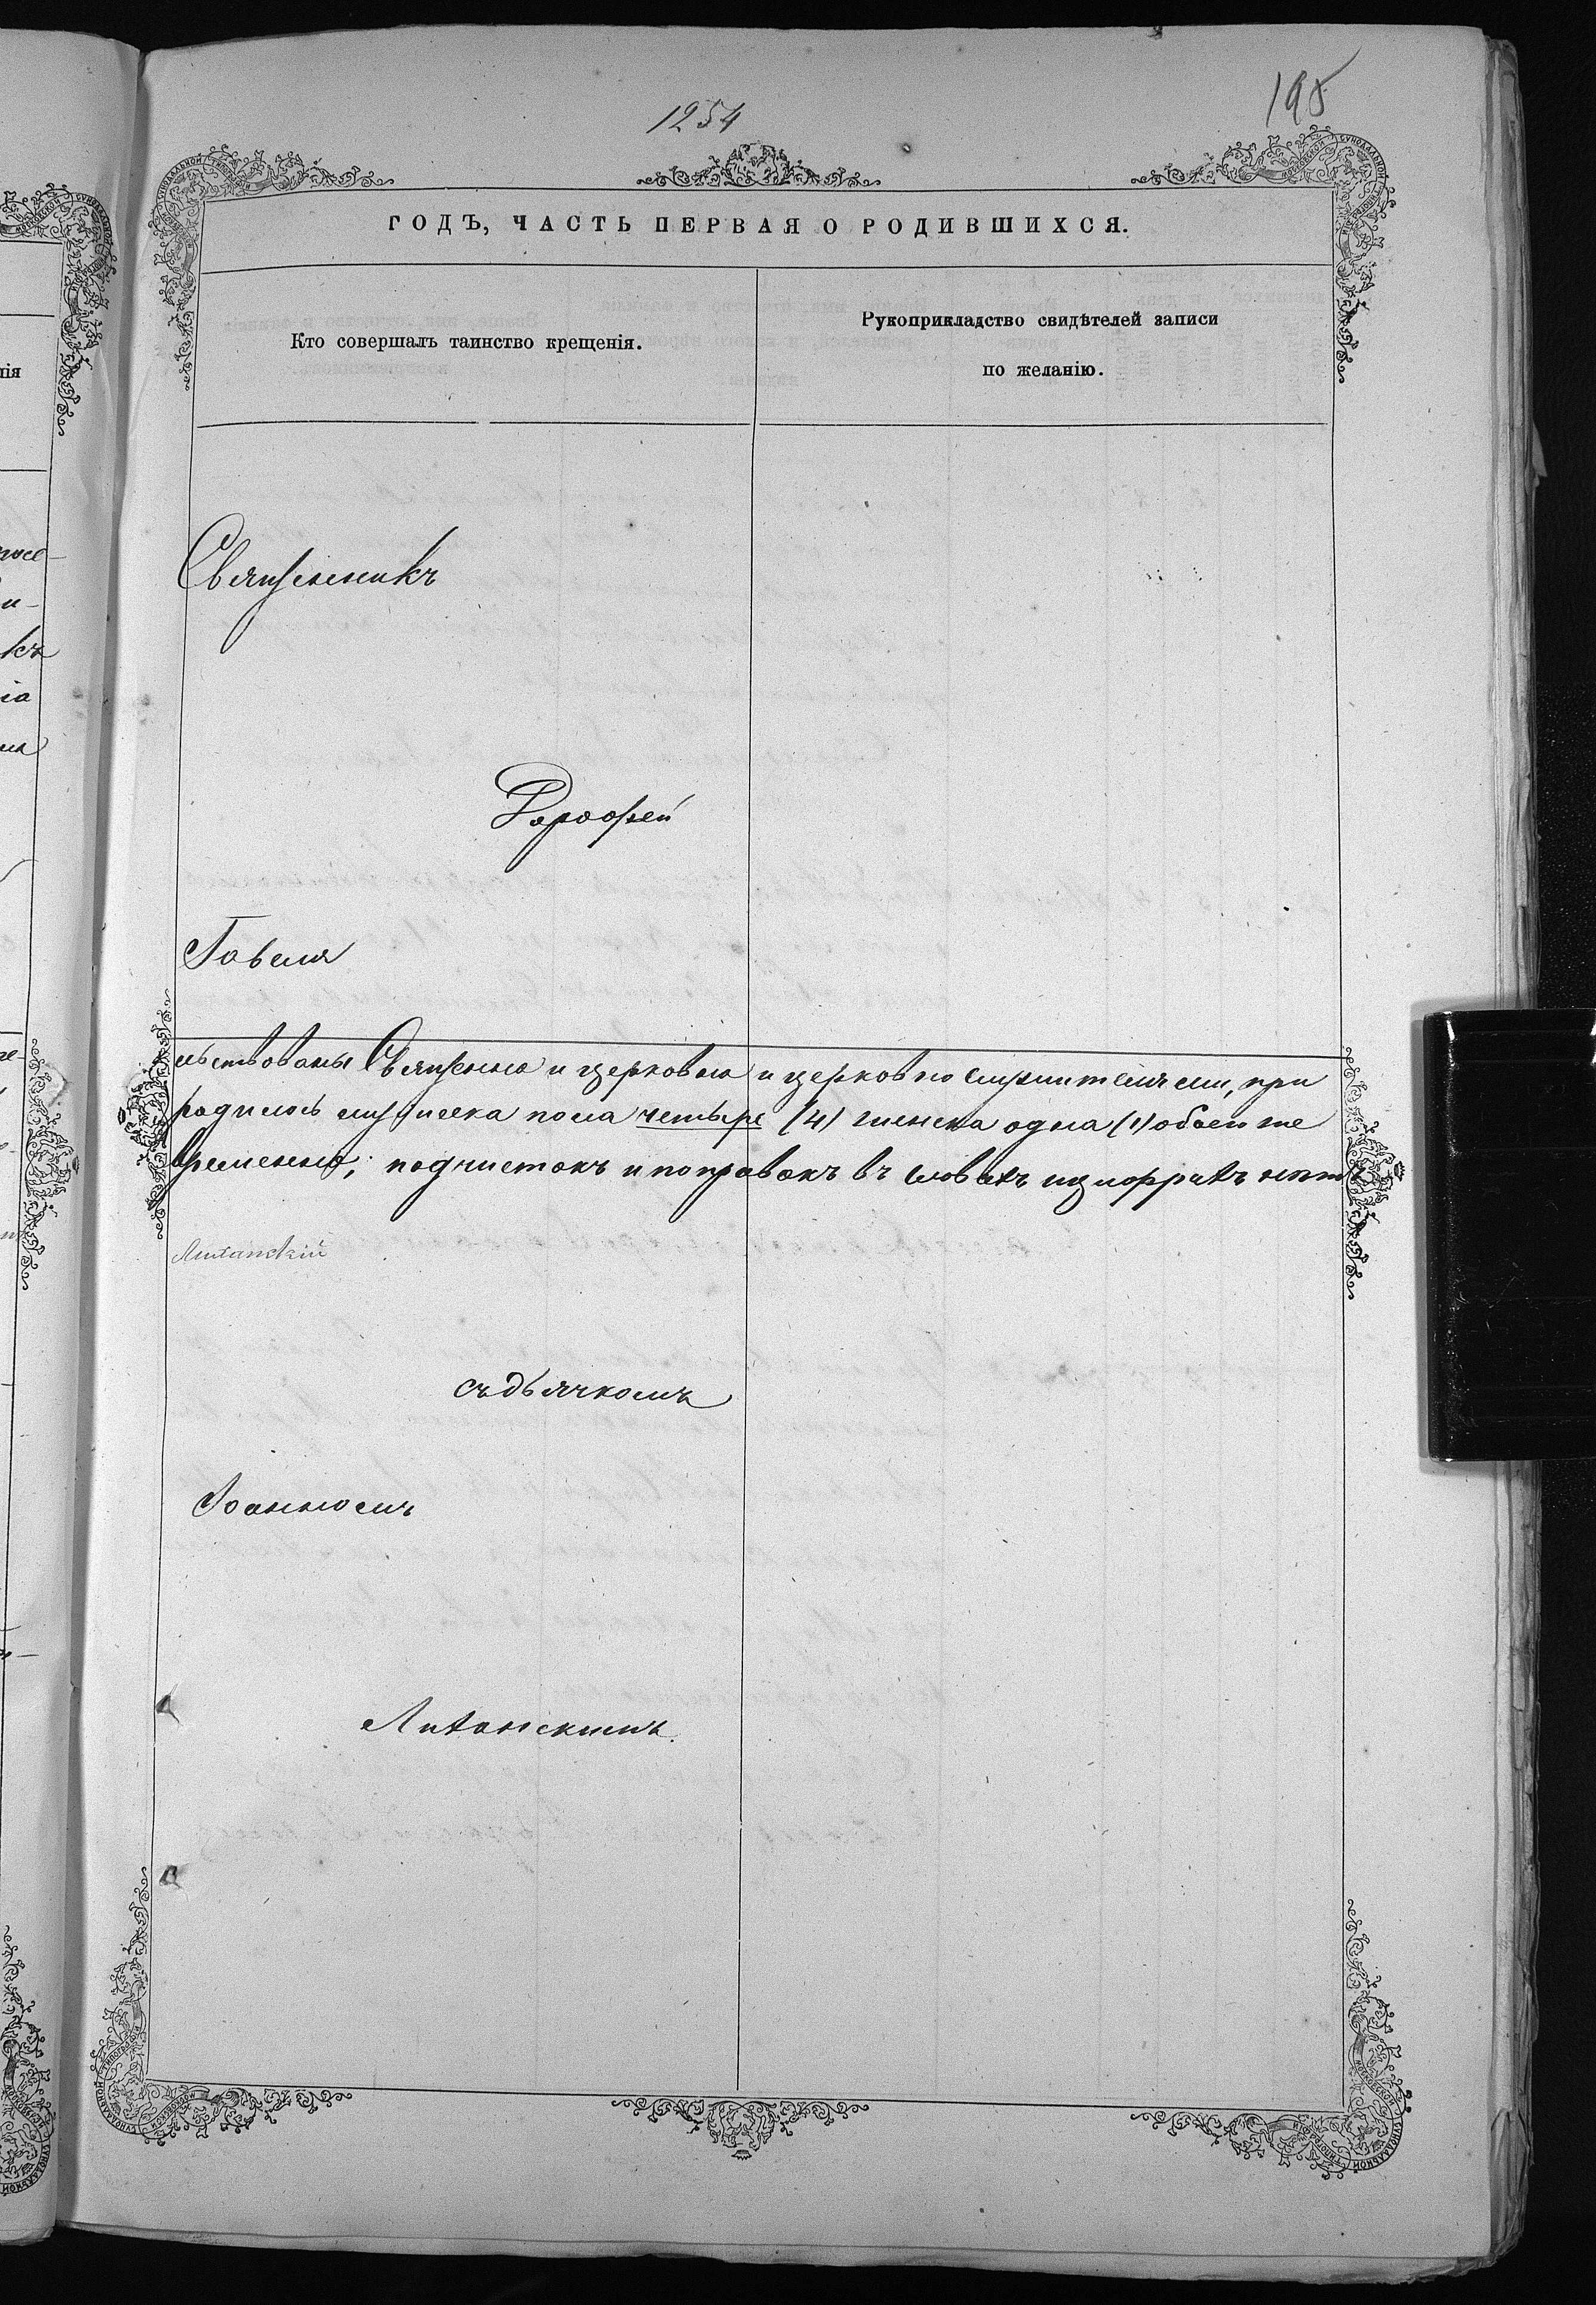 1254
195
ГОДЪ, ЧАСТЬ ПЕРВАЯ О РОДИВШИХСЯ.
Кто совершалъ таинство крещенія.
Рукоприкладство свидѣтелей записи
по желанію.
Священникъ
Дороѳей
Говеля
льствованы Священно и церковно и церковно служителями, при
родилось мужеска пола четыре (4) женска одна (1) обоего же
временно; подчистокъ и поправокъ въ словахъ и цифрахъ нѣтъ
Лиханскій
съ дьячкомъ
Іоанномъ
Лиханскимъ.